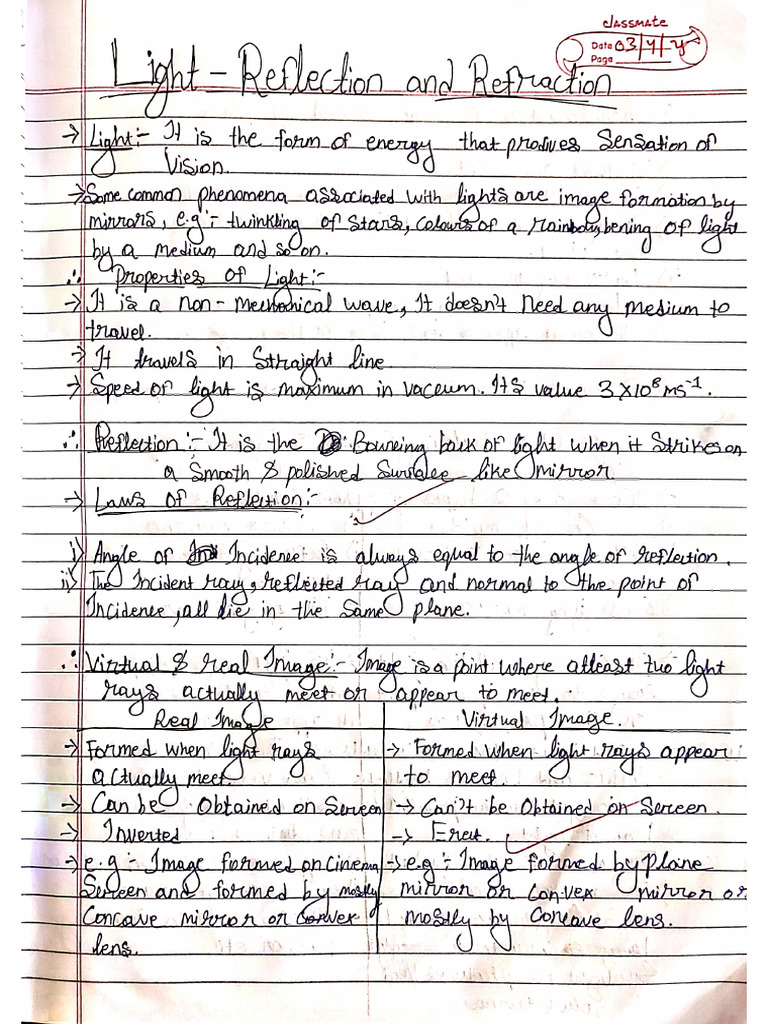 classmate
Date 03/4/y
Page
Light - Reflection and Refraction
→ Light:- It is the form of energy that produes Sensation of
Vision.
→ Some common phenomena associated with lights are image formation by
mirrors, e.g:- twinkling of Stars, colours of a rainbow, bening of light
by a medium and so on.
∴ Properties of Light:-
→ It is a non-mechanical wave, It doesn't Need any medium to
travel.
→ It travels in Straight line.
→ Speed of light is maximum in vaceum. Its value 3×10⁸ms⁻¹.
∴ Reflection:- It is the Bouncing back of light when it Strikes on
a Smooth & polished Surface like mirror.
→ Laws of Reflection:-
i) Angle of Incidence is always equal to the angle of reflection.
ii) The Incident ray, reflected ray and normal to the point of
Incidence, all lie in the Same plane.
∴ Virtual & real Image:- Image is a point where atleast two light
rays actually meet or appear to meet.
Real Image
→ Formed when light rays
actually meet.
→ Can be Obtained on Screen
→ Inverted
→ e.g:- Image formed on cinema
Screen and formed by mostly
Concave mirror or Convex
lens.
Virtual Image.
→ Formed when light rays appear
to meet.
→ Can't be Obtained on Screen.
→ Erect.
→ e.g:- Image formed by plane
mirror or Convex mirror or
mostly by Concave lens.